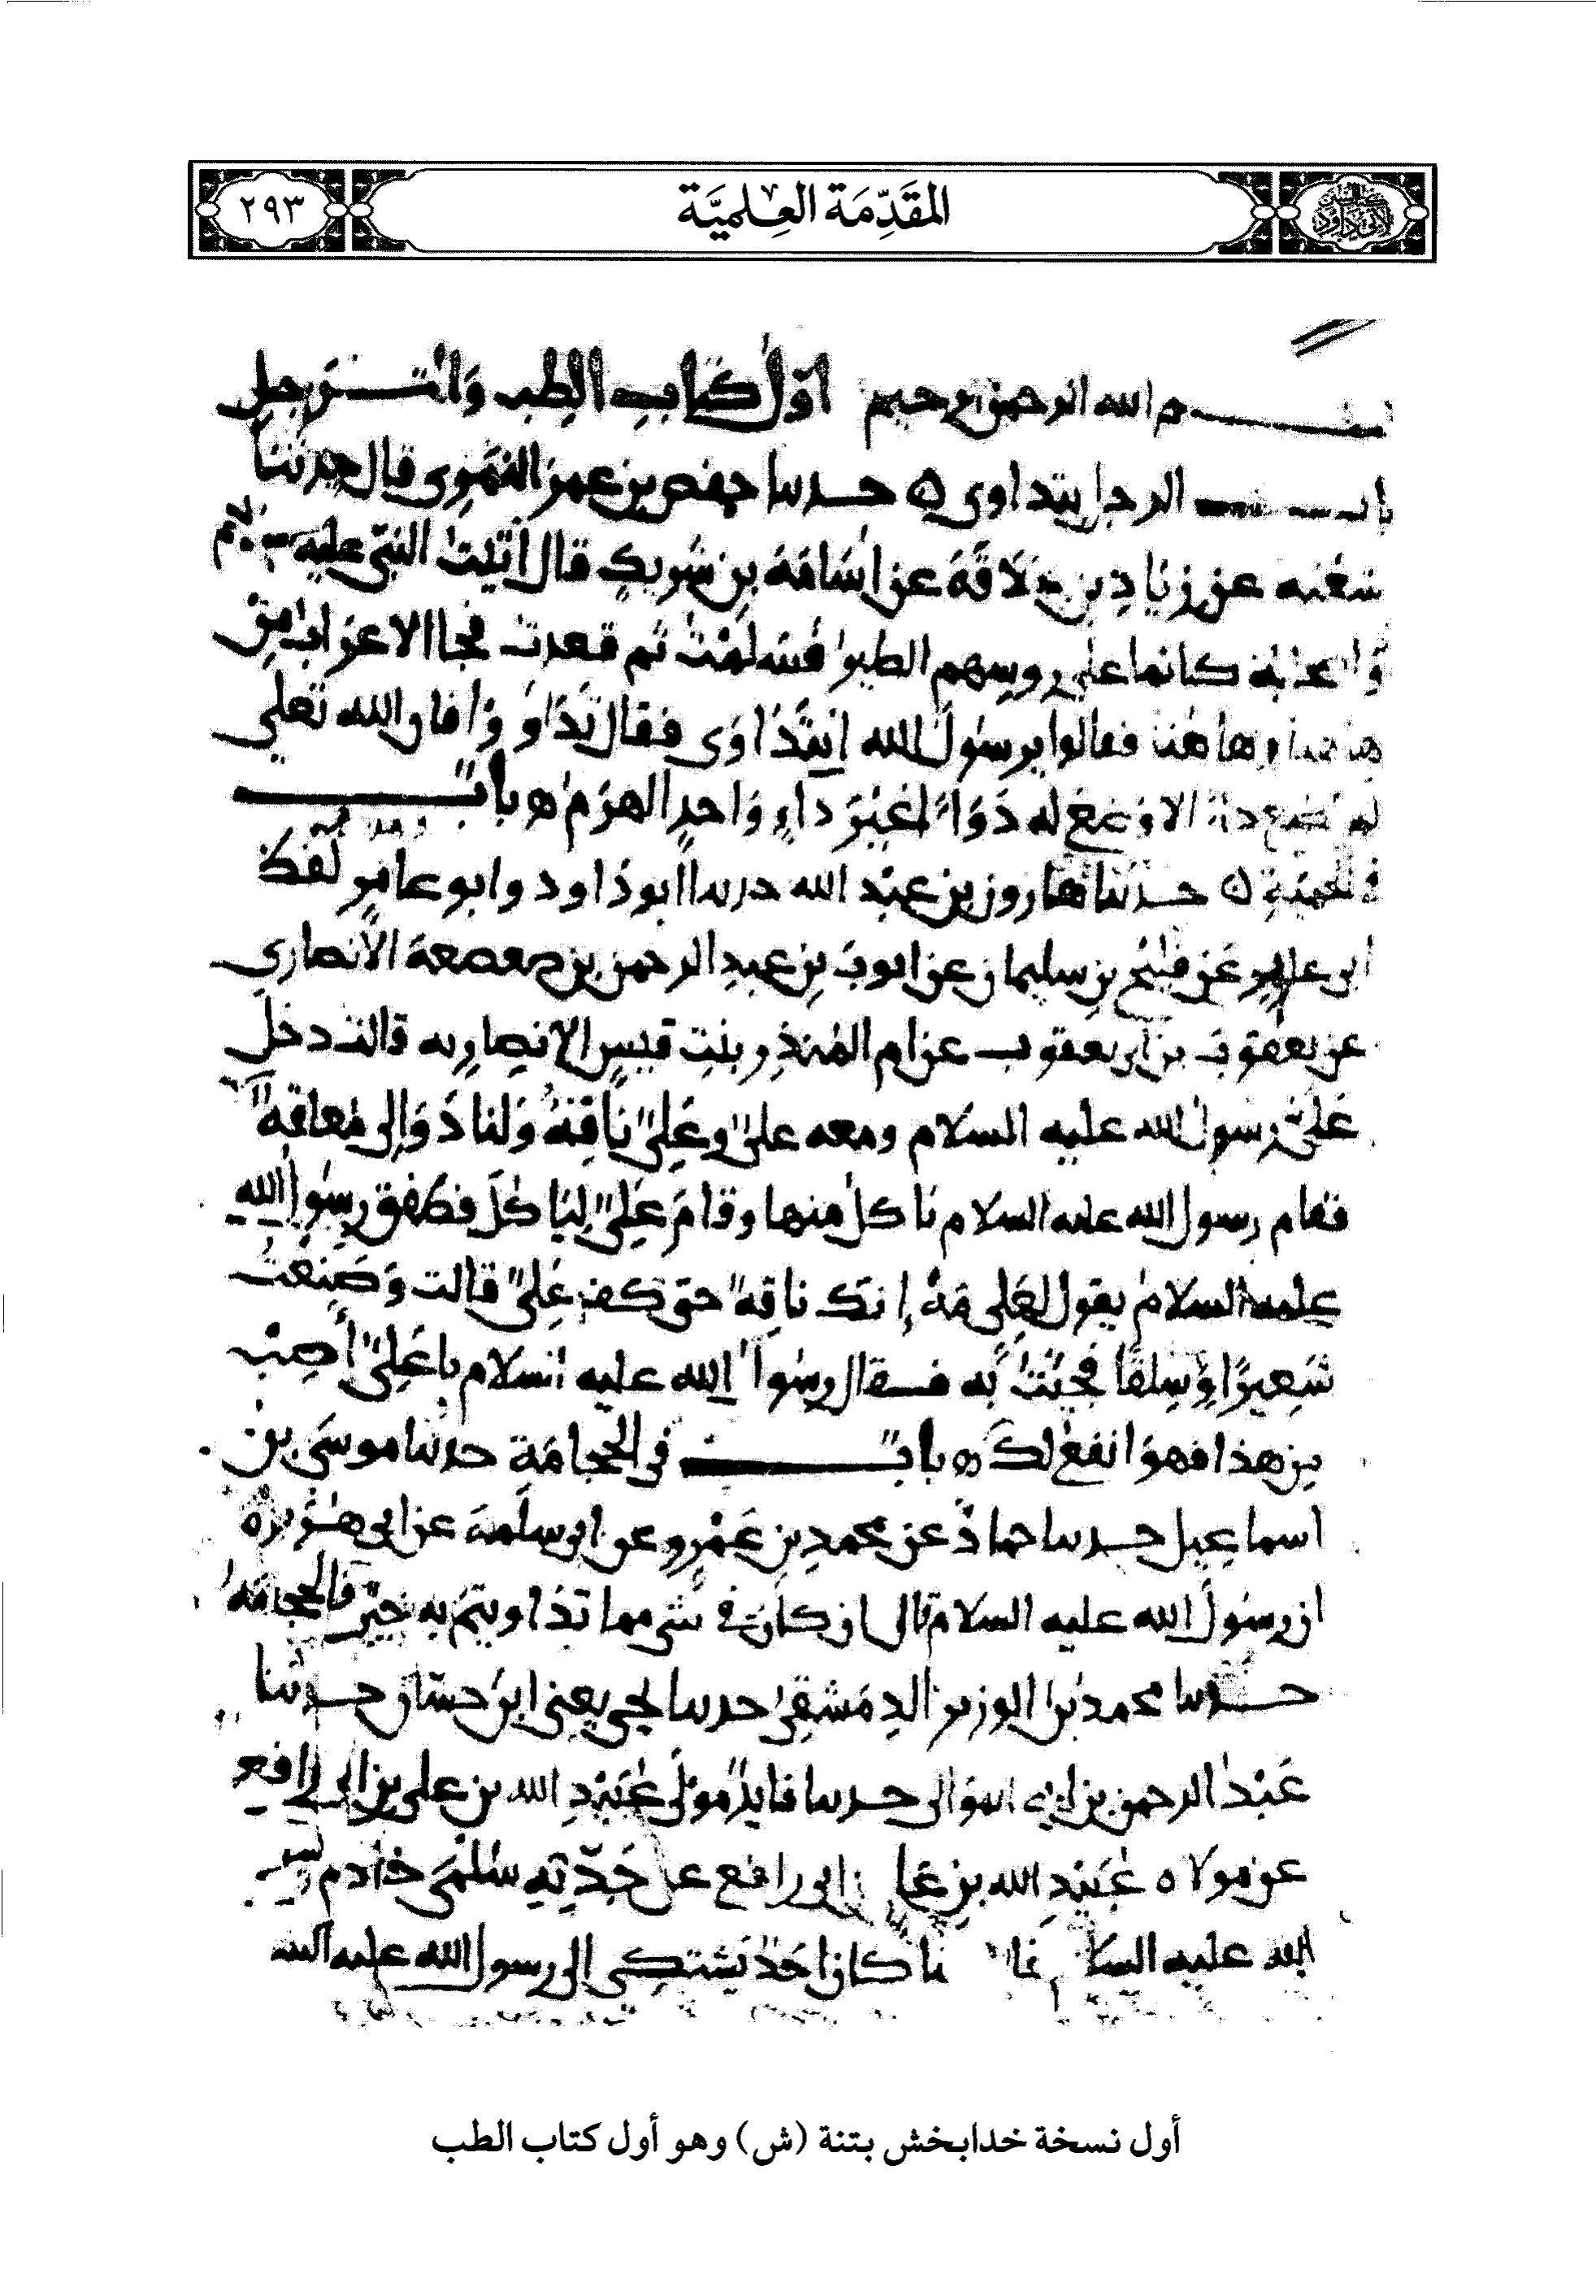 المقَدِّمَة العِلميَّة
٢٩٣
بسم الله الرحمن الرحيم اوّل كتاب الطب
باب الرجل يتداوى ه حدثنا حفص بن عمر النمري قال حدثنا
شعبه عن زياد بن علاقة عن اسامة بن شريك قال أتيت النبي عليه
كانما على روسهم الطير فسلمت ثم قعدت فجا الاعراب من
هاهنا وهاهنا فقالوا يرسول الله انتداوى فقال تداووا فان الله تعلى
لم يضع داء الا وضع له دواءً غير داءٍ واحدٍ الهرم ه بابٌ
في الحمية ه حدثنا هارون بن عبد الله حدثنا ابو داود وابو عامر لفظ
ابي عامر عن فليح بن سليمان عن ايوب بن عبد الرحمن بن صعصعة الأنصاري
عن يعقوب بن ابي يعقوب عن ام المنذر بنت قيس الانصاريه قالت دخل
عَلَيَّ رسول الله عليه السلام ومعه عليٌّ وعليٌّ ناقِهٌ ولنا دوالي معلقةٌ
فقام رسول الله عليه السلام ياكل منها وقام عليٌّ ليأكل فطفق رسول الله
عليه السلام يقول لعلي مه إنك ناقهٌ حتى كف عليٌّ قالت وصنعت
شعيرًا وسلقًا فجئت به فقال رسول الله عليه السلام يا عليّ أصب
من هذا فهو انفع لك ه بابٌ في الحجامة حدثنا موسى بن
اسماعيل حدثنا حمادٌ عن محمد بن عمرو عن ابي سلمة عن ابي هريرة
ان رسول الله عليه السلام قال ان كان في شي مما تداويتم به خيرٌ فالحجامه
حدثنا محمد بن الوزير الدمشقي حدثنا يحيى يعني ابن حسان حدثنا
عبد الرحمن بن ابي الموالي حدثنا فايدٌ مولى عبيد الله بن علي بن ابي رافع
عن مولاه عبيد الله بن علي بن ابي رافع عن جدته سلمى خادم رسول
الله عليه السلام قالت ما كان احدٌ يشتكي الى رسول الله عليه السلم
أول نسخة خدابخش بتنة (ش) وهو أول كتاب الطب